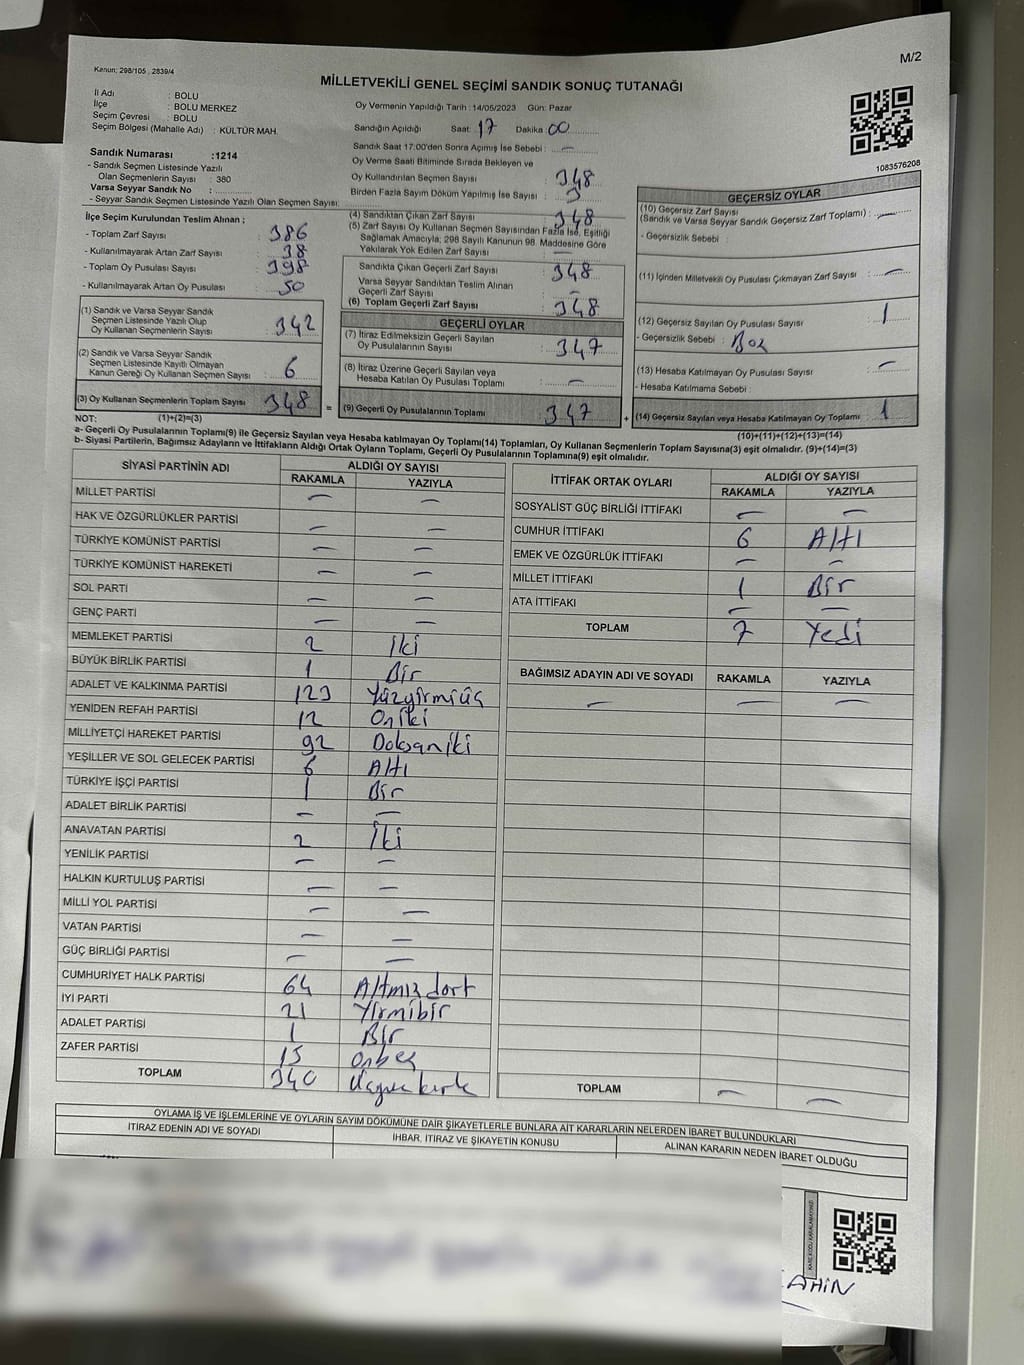 M/2
Kanun: 298/105 , 2839/4
MİLLETVEKİLİ GENEL SEÇİMİ SANDIK SONUÇ TUTANAĞI
İl Adı : BOLU
İlçe : BOLU MERKEZ
Seçim Çevresi : BOLU
Seçim Bölgesi (Mahalle Adı) : KÜLTÜR MAH.
Oy Vermenin Yapıldığı Tarih : 14/05/2023 Gün: Pazar
Sandığın Açıldığı Saat: 17 Dakika 00
Sandık Saat 17:00'den Sonra Açılmış İse Sebebi : —
Oy Verme Saati Bitiminde Sırada Bekleyen ve
Oy Kullandırılan Seçmen Sayısı : 348
Birden Fazla Sayım Döküm Yapılmış İse Sayısı :
1083576208
Sandık Numarası :1214
- Sandık Seçmen Listesinde Yazılı
Olan Seçmenlerin Sayısı : 380
Varsa Seyyar Sandık No :
- Seyyar Sandık Seçmen Listesinde Yazılı Olan Seçmen Sayısı:
İlçe Seçim Kurulundan Teslim Alınan ;
- Toplam Zarf Sayısı : 386
- Kullanılmayarak Artan Zarf Sayısı : 38
- Toplam Oy Pusulası Sayısı : 398
- Kullanılmayarak Artan Oy Pusulası : 50
(1) Sandık ve Varsa Seyyar Sandık
Seçmen Listesinde Yazılı Olup
Oy Kullanan Seçmenlerin Sayısı : 342
(2) Sandık ve Varsa Seyyar Sandık
Seçmen Listesinde Kayıtlı Olmayan
Kanun Gereği Oy Kullanan Seçmen Sayısı : 6
(3) Oy Kullanan Seçmenlerin Toplam Sayısı : 348 =
(4) Sandıktan Çıkan Zarf Sayısı : 348
(5) Zarf Sayısı Oy Kullanan Seçmen Sayısından Fazla İse, Eşitliği
Sağlamak Amacıyla; 298 Sayılı Kanunun 98. Maddesine Göre
Yakılarak Yok Edilen Zarf Sayısı : —
Sandıkta Çıkan Geçerli Zarf Sayısı : 348
Varsa Seyyar Sandıktan Teslim Alınan
Geçerli Zarf Sayısı : —
(6) Toplam Geçerli Zarf Sayısı : 348
GEÇERLİ OYLAR
(7) İtiraz Edilmeksizin Geçerli Sayılan
Oy Pusulalarının Sayısı : 347
(8) İtiraz Üzerine Geçerli Sayılan veya
Hesaba Katılan Oy Pusulası Toplamı : —
(9) Geçerli Oy Pusulalarının Toplamı : 347 +
GEÇERSİZ OYLAR
(10) Geçersiz Zarf Sayısı
(Sandık ve Varsa Seyyar Sandık Geçersiz Zarf Toplamı) : —
- Geçersizlik Sebebi :
(11) İçinden Milletvekili Oy Pusulası Çıkmayan Zarf Sayısı : —
(12) Geçersiz Sayılan Oy Pusulası Sayısı : 1
- Geçersizlik Sebebi :
(13) Hesaba Katılmayan Oy Pusulası Sayısı : —
- Hesaba Katılmama Sebebi :
(14) Geçersiz Sayılan veya Hesaba Katılmayan Oy Toplamı : 1
NOT: (1)+(2)=(3)
(10)+(11)+(12)+(13)=(14)
a- Geçerli Oy Pusulalarının Toplamı(9) ile Geçersiz Sayılan veya Hesaba katılmayan Oy Toplamı(14) Toplamları, Oy Kullanan Seçmenlerin Toplam Sayısına(3) eşit olmalıdır. (9)+(14)=(3)
b- Siyasi Partilerin, Bağımsız Adayların ve İttifakların Aldığı Ortak Oyların Toplamı, Geçerli Oy Pusulalarının Toplamına(9) eşit olmalıdır.
SİYASİ PARTİNİN ADI ALDIĞI OY SAYISI
RAKAMLA YAZIYLA
MİLLET PARTİSİ — —
HAK VE ÖZGÜRLÜKLER PARTİSİ — —
TÜRKİYE KOMÜNİST PARTİSİ — —
TÜRKİYE KOMÜNİST HAREKETİ — —
SOL PARTİ — —
GENÇ PARTİ — —
MEMLEKET PARTİSİ 2 iki
BÜYÜK BİRLİK PARTİSİ 1 Bir
ADALET VE KALKINMA PARTİSİ 123 Yüzyirmiüç
YENİDEN REFAH PARTİSİ 12 Oniki
MİLLİYETÇİ HAREKET PARTİSİ 92 Doksaniki
YEŞİLLER VE SOL GELECEK PARTİSİ 6 Altı
TÜRKİYE İŞÇİ PARTİSİ 1 Bir
ADALET BİRLİK PARTİSİ — —
ANAVATAN PARTİSİ 2 İki
YENİLİK PARTİSİ — —
HALKIN KURTULUŞ PARTİSİ — —
MİLLİ YOL PARTİSİ — —
VATAN PARTİSİ — —
GÜÇ BİRLİĞİ PARTİSİ — —
CUMHURİYET HALK PARTİSİ 64 Altmışdört
İYİ PARTİ 21 Yirmibir
ADALET PARTİSİ 1 Bir
ZAFER PARTİSİ 15 Onbeş
TOPLAM 340 Üçyüzkırk
İTTİFAK ORTAK OYLARI ALDIĞI OY SAYISI
RAKAMLA YAZIYLA
SOSYALİST GÜÇ BİRLİĞİ İTTİFAKI — —
CUMHUR İTTİFAKI 6 Altı
EMEK VE ÖZGÜRLÜK İTTİFAKI — —
MİLLET İTTİFAKI 1 Bir
ATA İTTİFAKI — —
TOPLAM 7 Yedi
BAĞIMSIZ ADAYIN ADI VE SOYADI RAKAMLA YAZIYLA
— — —
TOPLAM — —
OYLAMA İŞ VE İŞLEMLERİNE VE OYLARIN SAYIM DÖKÜMÜNE DAİR ŞİKAYETLERLE BUNLARA AİT KARARLARIN NELERDEN İBARET BULUNDUKLARI
İTİRAZ EDENİN ADI VE SOYADI İHBAR, İTİRAZ VE ŞİKAYETİN KONUSU ALINAN KARARIN NEDEN İBARET OLDUĞU